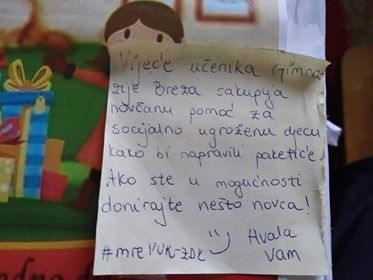 Vijeće učenika Gimna
zije Breza sakuplja
novčanu pomoć za
socijalno ugroženu djecu
kako bi napravili paketiće.
Ako ste u mogućnosti
donirajte nešto novca!
Hvala
#mreVUK-ZDK Vam